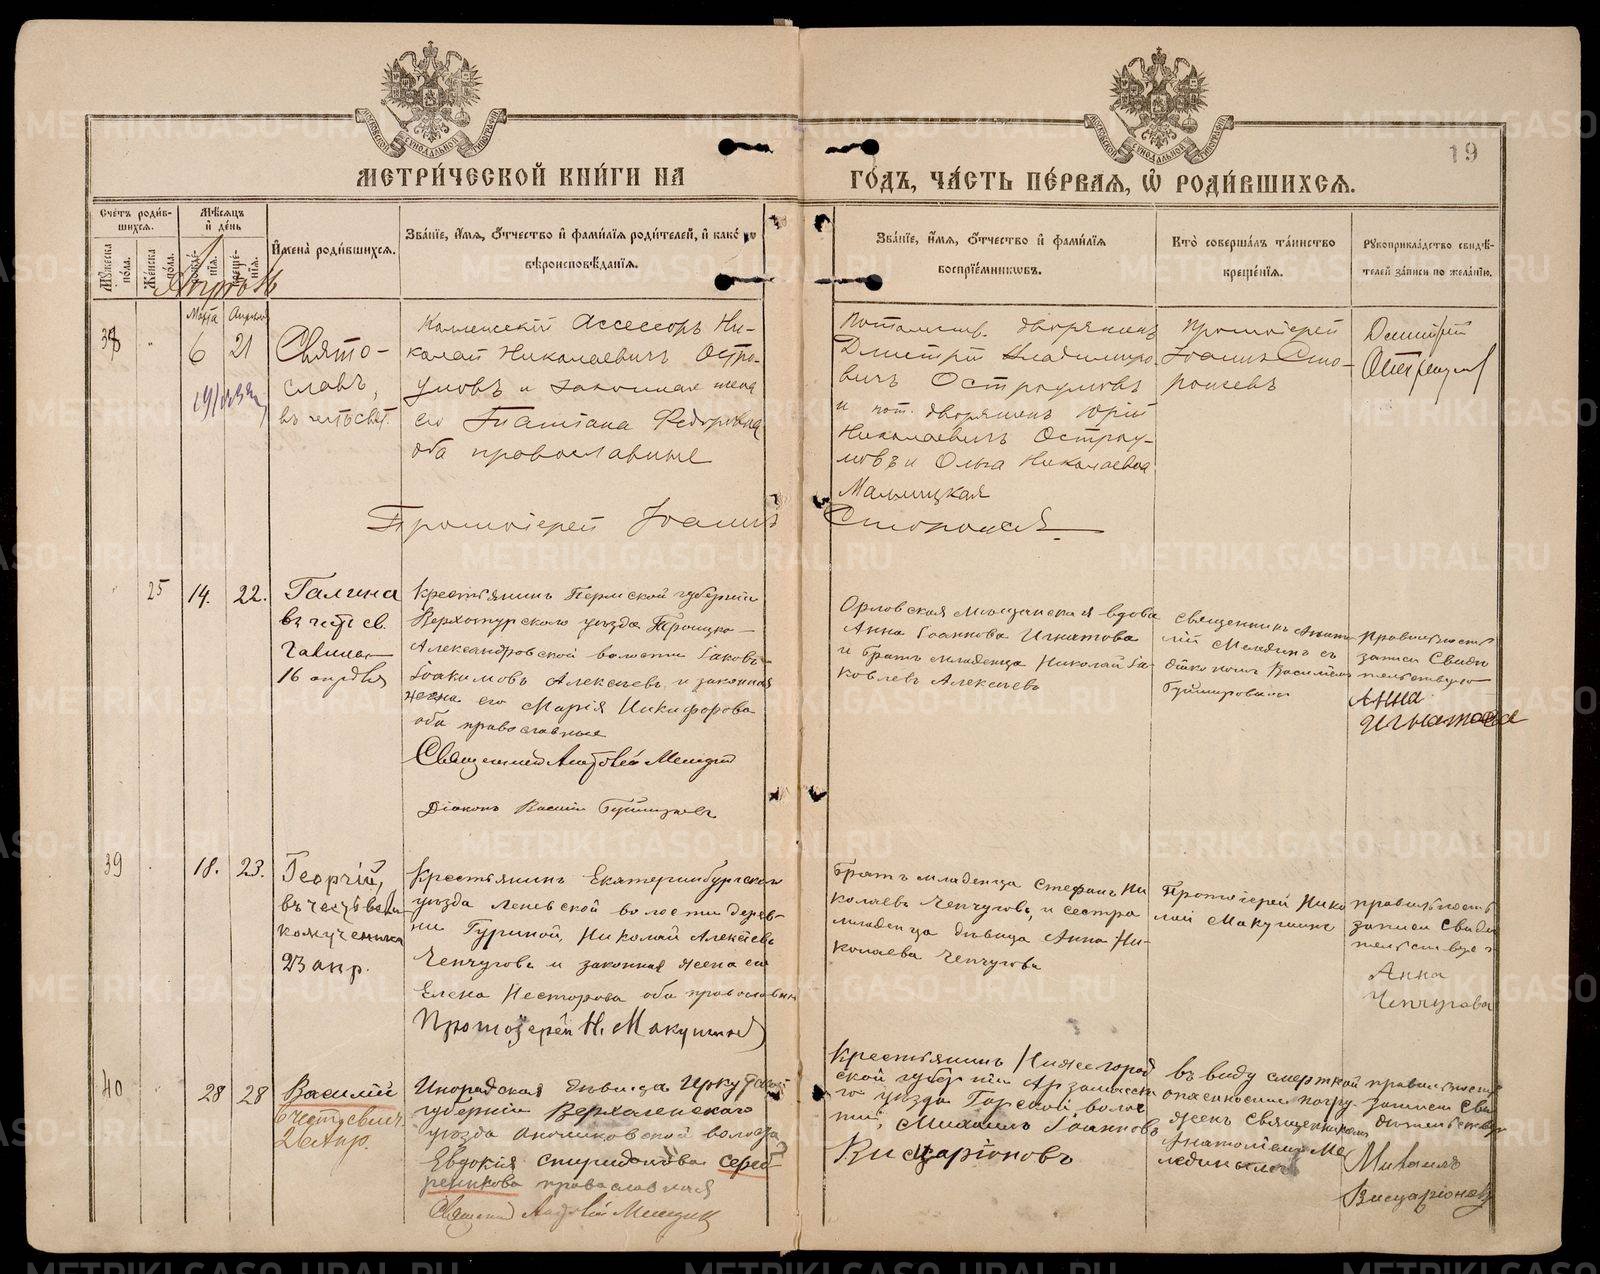 МЕТРИ́ЧЕСКОЙ КНИ́ГИ НА
ГО́ДЪ, ЧА́СТЬ ПЕ́РВАѦ, Ѡ҆ РОДИ́ВШИХСѦ.
19
Сче́тъ роди́в-
шихсѧ.
Мѣ́сѧцъ
и҆ де́нь
И҆мена̀ роди́вшихсѧ.
Зва́нїе, и҆́мѧ, Ѻ҆́тчество и҆ фами́лїѧ роди́телей, и҆ како́
вѣ́роисповѣ́данїѧ.
Зва́нїе, и҆́мѧ, Ѻ҆́тчество и҆ фами́лїѧ
воспрїе́мникѡвъ.
Кто̀ соверша́лъ та́инство
креще́нїѧ.
Рꙋкоприкла́дство свидѣ́-
телей за́писи по жела́нїю.
Мꙋ́жеска
по́ла.
Же́нска
по́ла.
Марта Апрѣля
38
6 21
Свято-
славъ,
Коллежскій Ассессоръ Ни-
колай Николаевичъ Остро-
умовъ и законная жена
его Татіана Федоровна
оба православные
Потомств. дворянинъ
Дмитрій Владимиро-
вичъ Остроумовъ
и пот. дворянинъ Юрій
Николаевичъ Остроу-
мовъ и Ольга Николаевна
Протоіерей
Іоаннъ Сто-
рожевъ
Дмитрій
Остроумовъ
Протоіерей Іоаннъ Сторожевъ
25 14. 22.
Галина
въ честь св.
Галины
16 апрѣля
Крестьянинъ Пермской губерніи
Верхотурскаго уѣзда Троицко-
Александровской волости Іаковъ
Іоакимовъ Алексѣевъ и законная
жена его Марія Никифорова
оба православные
Священникъ Анатолій Меледин
Діаконъ Василій
Орловская мѣщанская вдова
Анна Іоаннова Игнатова
и братъ младенца Николай Іа-
ковлевъ Алексѣевъ
Священникъ Анато-
лій Мелединъ съ
діакономъ Василіемъ
правильность
записи свидѣ
тельствую
Анна
Игнатова
39 18. 23.
Георгій,
въ честь вели
комученика
23 апр.
Крестьянинъ Екатеринбургскаго
уѣзда волости дерев-
ни Гуриной, Николай Алексѣевъ
Ченчуговъ и законная жена его
Елена Несторова оба православны
Протоіерей Н. Макушинъ
Братъ младенца Стефанъ Ни
колаевъ Ченчуговъ, и сестра
младенца дѣвица Анна Ни-
колаева Ченчугова
Протоіерей Нико
лай Макушинъ
правильность
записи свидѣ
тельствую
Анна
Ченчугова
40 28 28
Василій
въ честь свящ.
26 Апр.
Инородская дѣвица Иркутской
губерніи Верхоленскаго
уѣзда волости
Евдокія Спиридонова Сереб-
ренникова православная
Священник Анатолій Меледин
Крестьянинъ Нижегород
ской губерніи Арзамасска
го уѣзда волос
ти, Михаилъ Іоанновъ
Виссаріоновъ
въ виду смертной
опасности погру-
женъ священникомъ
Анатоліемъ Ме
лединымъ
правильность
записи сви
дѣтельствую
Михаилъ
Виссаріоновъ